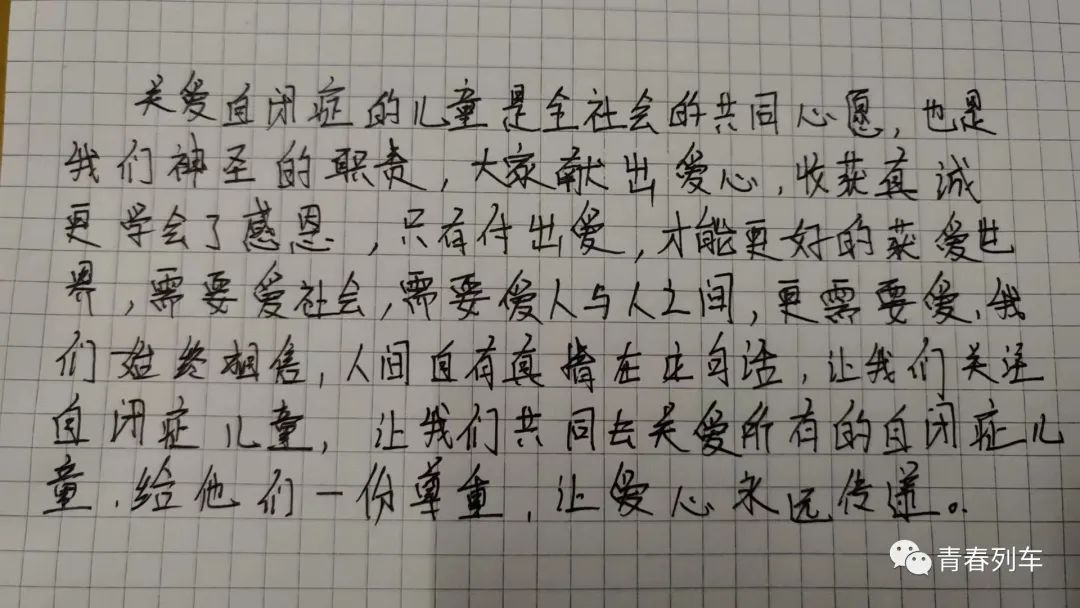 关爱自闭症的儿童是全社会的共同心愿，也是
我们神圣的职责，大家献出爱心，收获真诚
更学会了感恩，只有付出爱，才能更好的获爱世
界，需要爱社会，需要爱人与人之间，更需要爱，我
们始终相信，人间自有真情在这句话，让我们关注
自闭症儿童，让我们共同去关爱所有的自闭症儿
童，给他们一份尊重，让爱心永远传递。
青春列车